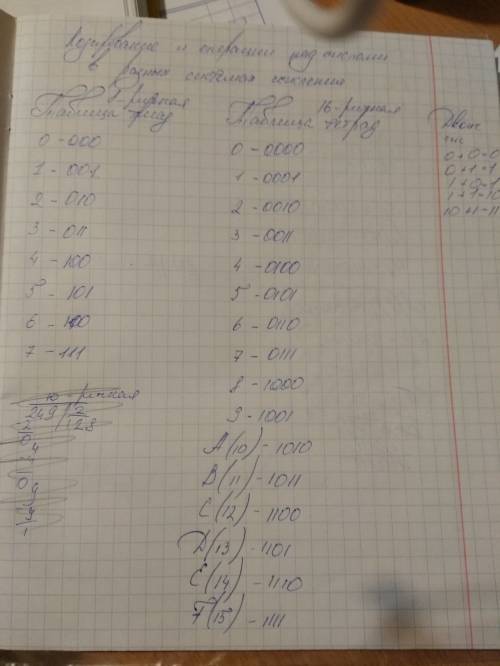 Кодирование и операции над числами
в разных системах счисления
8-ричная
Таблица триад
0 - 000
1 - 001
2 - 010
3 - 011
4 - 100
5 - 101
6 - 100
7 - 111
10-ричная
249 2
16-ричная
Таблица тетрад
0 - 0000
1 - 0001
2 - 0010
3 - 0011
4 - 0100
5 - 0101
6 - 0110
7 - 0111
8 - 1000
9 - 1001
A(10) - 1010
B(11) - 1011
C(12) - 1100
Д(13) - 1101
E(14) - 1110
F(15) - 1111
Двоич
0+0=0
0+1=1
1+0=1
1+1=10
10+1=11